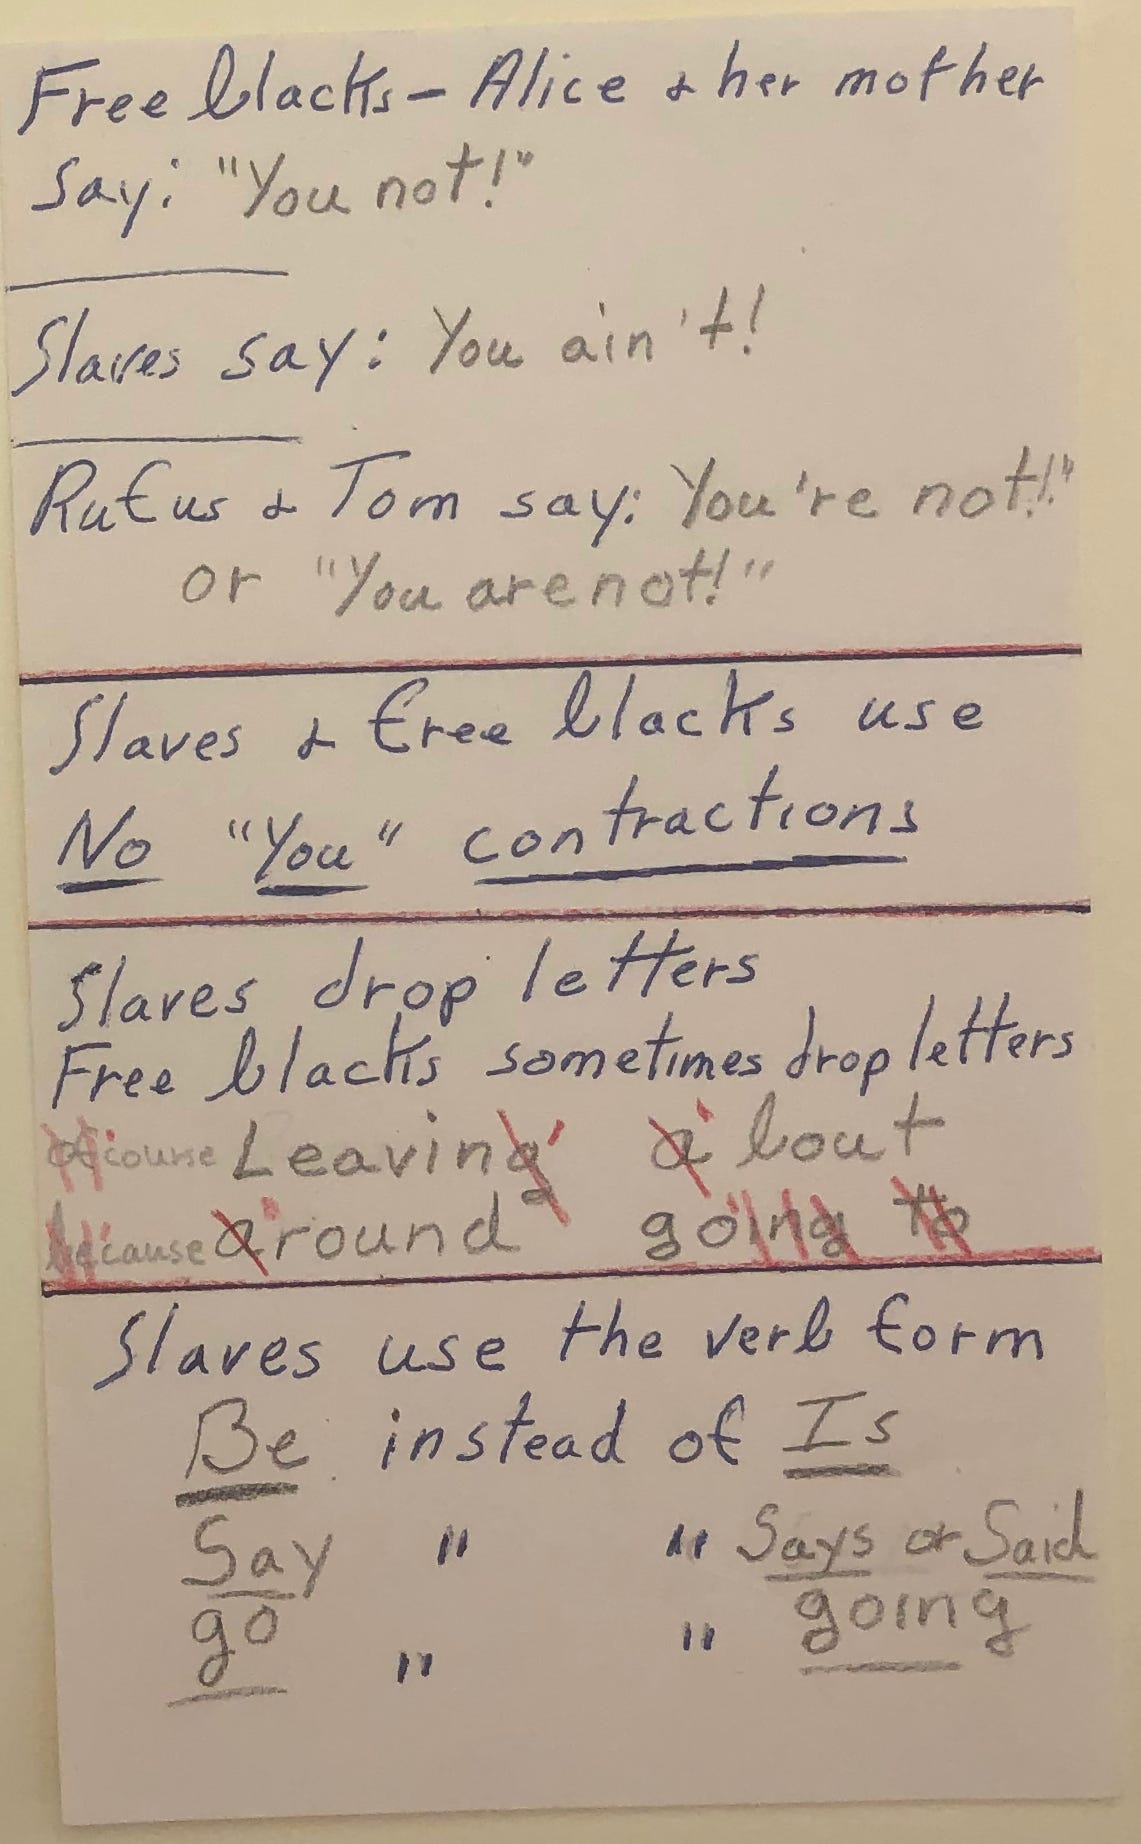 Free blacks - Alice & her mother
say: "You not!"
Slaves say: You ain't!
Rufus & Tom say: You're not!"
or "You are not!"
Slaves & free blacks use
No "You" contractions
Slaves drop letters
Free blacks sometimes drop letters
of course Leaving' a'bout
because a'round going to
Slaves use the verb form
Be instead of Is
Say " " Says or Said
go " " going